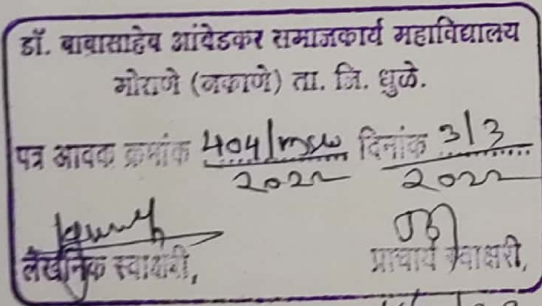 डॉ. बाबासाहेब आंबेडकर समाजकार्य महाविद्यालय
मोराणे (नकाणे) ता. जि. धुळे.
पत्र आवक क्रमांक 404/msw दिनांक 3/3
२०२२ २०२२
लेखनिक स्वाक्षरी, प्राचार्य स्वाक्षरी,